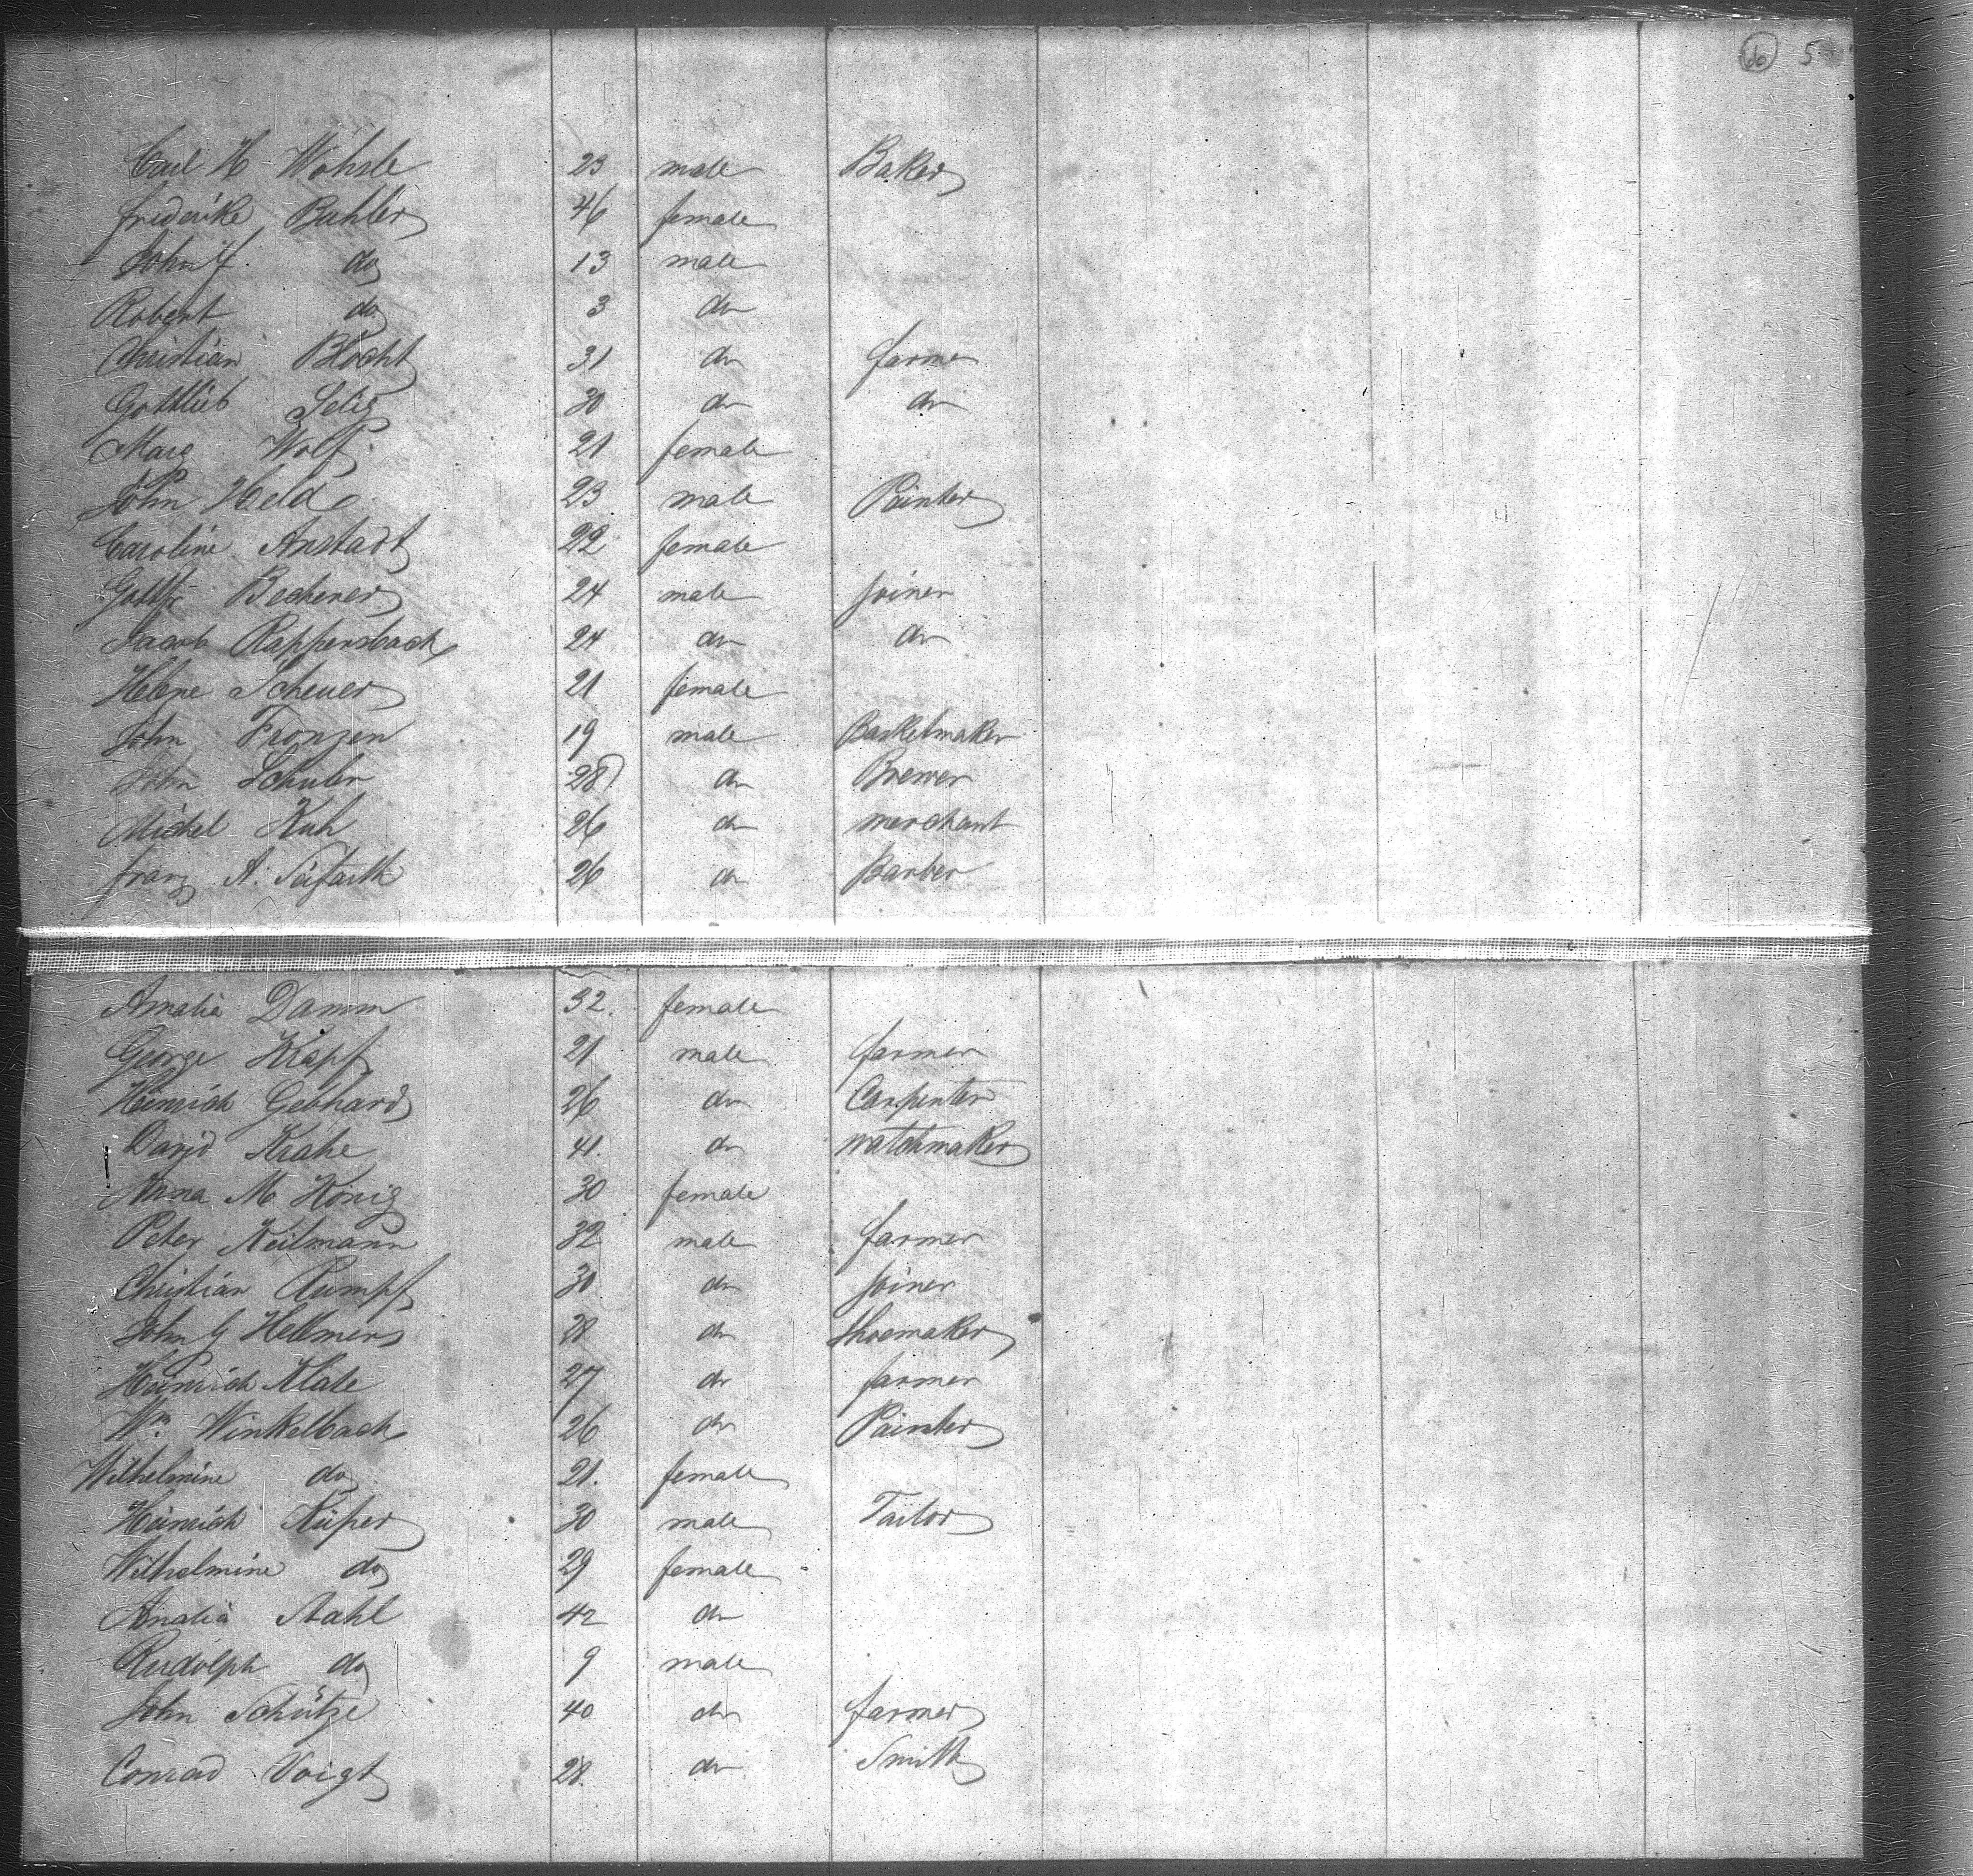 60 5
Carl H Wöhrle 23 male Baker
Frederike Buhler 46 female
John f. do 13 male
Robert do 3 do
Christian Blocht 31 do farmer
Gottlieb Selig 30 do do
Marg Wolf 21 female
John Held 23 male Painter
Caroline Anstadt 22 female
Gottfr Becherer 24 male joiner
Jacob Rappersbach 24 do do
Helene Scheuer 21 female
John Fronzen 19 male Basketmaker
John Schuler 28 do Brewer
Michel Kuh 26 do merchant
franz A. Seifarth 26 do Barber
Amalia Damm 32. female
George Krapf 21 male farmer
Heinrich Gebhard 26 do Carpenter
David Krahe 41. do watchmaker
Anna M König 30 female
Peter Keilmann 32 male farmer
Christian Rumpf 30. do joiner
John G Hellmers 28 do Shoemaker
Heinrich Klate 27 do farmer
Wm. Winkelbach 26 do Painter
Wilhelmine do 21. female
Heinrich Küper 30 male Tailor
Wilhelmine do 29 female
Amalia Stahl 42 do
Rudolph do 9 male
John Schütze 40 do farmer
Conrad Voigt 28. do Smith